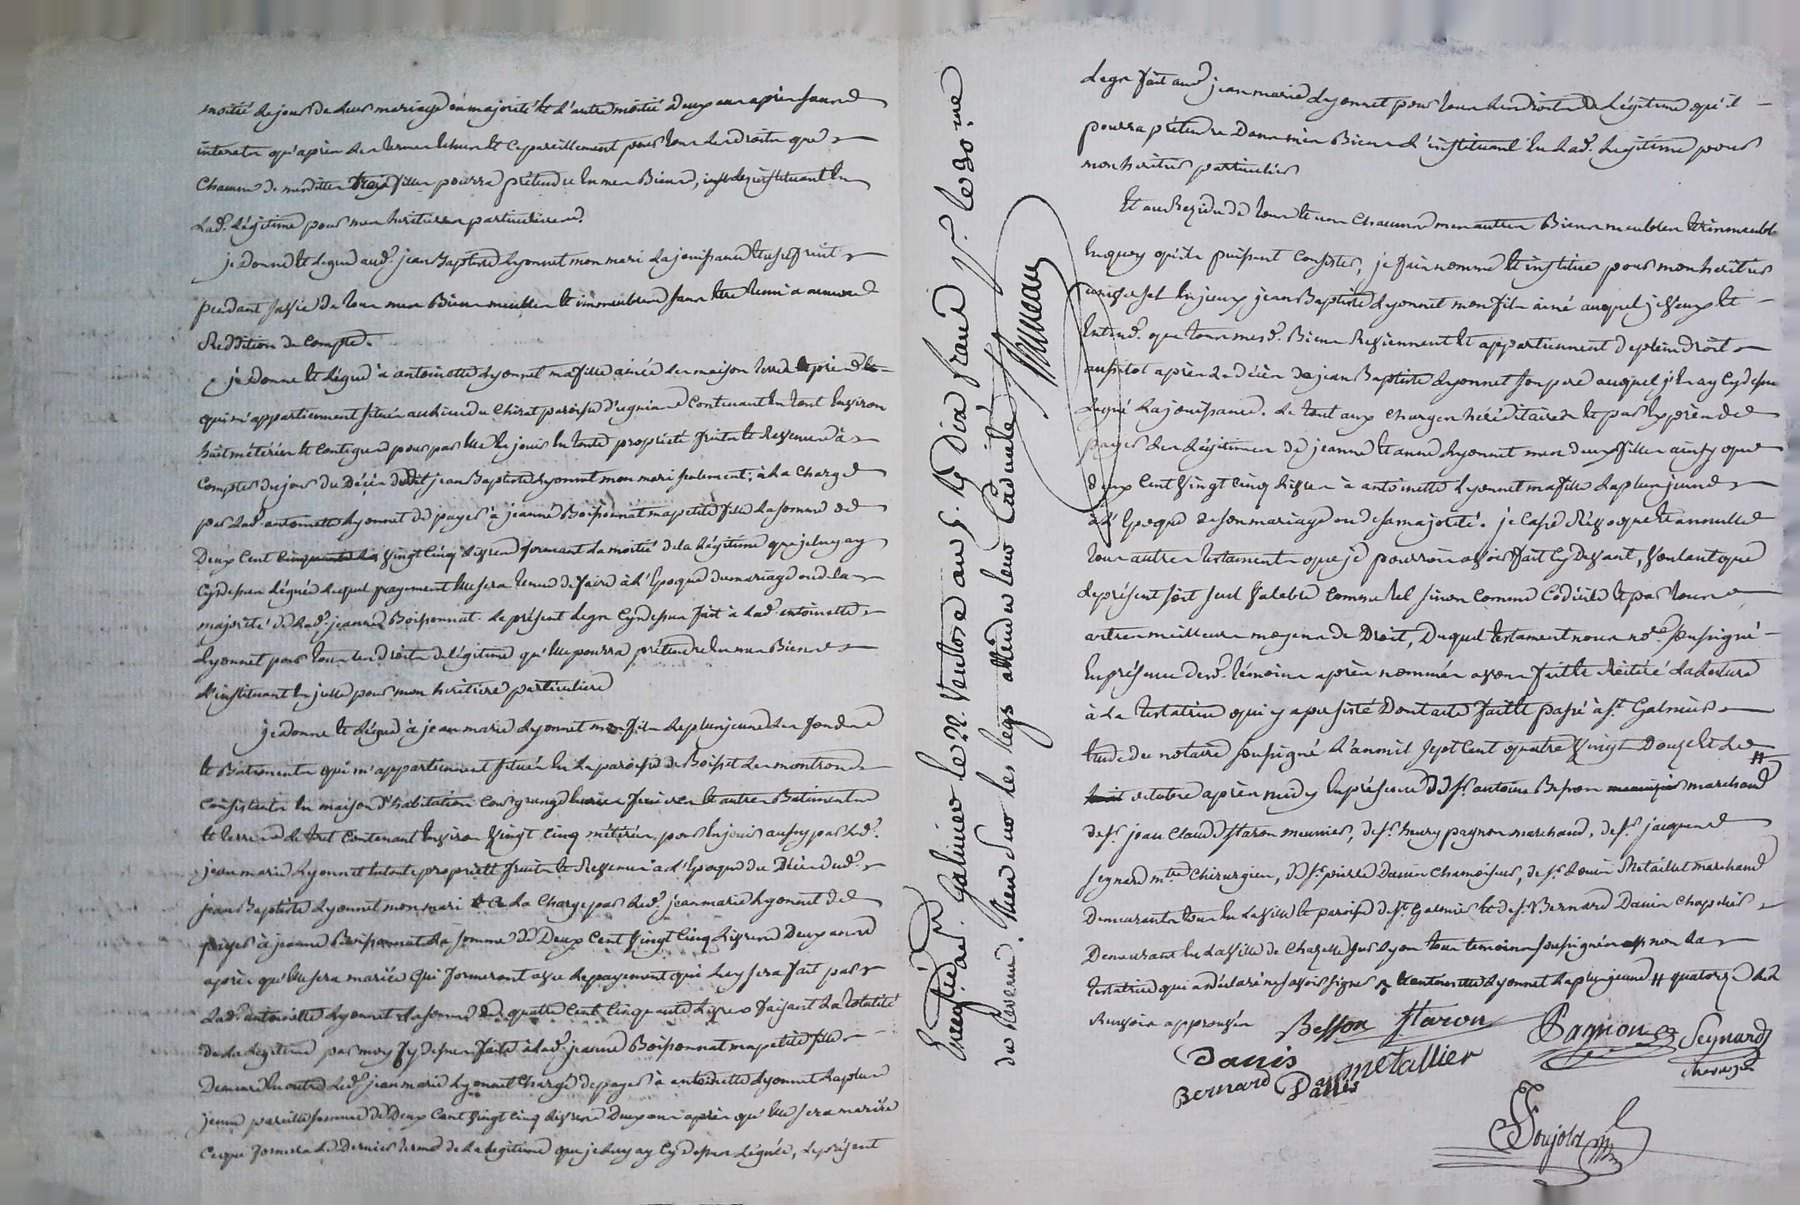 moitié du jour de leur mariage ou majorité et l'autre moitié deux ans après sans
interets qu'après les termes echus et ce pareillement pour tous les droits que
chacune de mesdittes filles pourra prétendre en mes Biens, instituant en
lad. Légitime pour mes heritieres particulieres.
je donne et legue aud. jean Baptiste Lyonnet mon mari la jouissance et usufruit
pendant sa vie de tous mes Biens meubles et immeubles sans être tenu a aucune
Reddition de Compte.
je donne et légue à antoinette Lyonnet ma fille ainée les maison terre et
qui m'appartiennent située au lieu du Chirat paroisse d'
huit météries et contigues pour par elle jouir en toute proprieté fruits et Revenus à
compter du jour du Décès dudit jean Baptiste Lyonnet mon mari seulement, à la charge
par lad. antoinette Lyonnet de payer à jeanne Boissonnat ma petite fille la somme de
Deux Cent vingt cinq Livres formant la moitié de la Légitime que je luy ay
cy dessus léguée lequel payement elle sera tenue de faire à l'Epoque du mariage ou de la
majorité de lad. jeanne Boissonnat. Le présent legs cy dessus fait à lad. antoinette
Lyonnet pour tous les droits de légitime qu'elle pourra prétendre en mes Biens
l'instituant en icelle pour mon heritiere particuliere
je donne et légue à jean marie Lyonnet mon fils le plus jeune les fonds
et Batiments qui m'appartiennent située en la paroisse de Boisset les montrond
consistants en maison d'habitation cour grange et autres Batiments
et terres le tout contenant environ vingt cinq météries, pour en jouir aussy par led.
jean marie Lyonnet en toute proprieté fruits et Revenus à l'Epoque du Décès dud.
jean Baptiste Lyonnet mon mari à la Charge par led. jean marie Lyonnet de
payer à jeanne Boissonnat la somme de Deux Cent vingt cinq Livres Deux ans
après qu'elle sera mariée qui formeront avec le payement qui luy sera fait par
lad. antoinette Lyonnet la somme de quatre Cent Cinquante Livres faisant la totalité
de la Légitime par moy cy dessus faite à lad. jeanne Boissonnat ma petite fille
Demeure en outre led. jean marie Lyonnet Chargé de payer à antoinette Lyonnet la plus
jeune pareille somme de Deux Cent vingt cinq Livres Deux ans après qu'elle sera mariée
ce qui formera le dernier terme de la légitime que je luy ay cy dessus léguée, le présent
Enregistré a St. Galmier le 22 Ventose an 5. Rç Dix francs pr. le 30.me
du Revenu. Rien sur les legs attendu leur Caducité
legs fait aud jean marie Lyonnet pour tous les droits de Légitime qu'il
pourra prétendre Dans mes Biens l'instituant en lad. Légitime pour
mon heritier particulier
Et au Residu de tous et un chacuns mes autres Biens meubles et immeubles
en quoy qu'ils puissent consister, je fais nomme et institue pour mon heritier
universel en iceux jean Baptiste Lyonnet mon fils ainé auquel je veux et
entend. que tous mesd. Biens Reviennent et appartiennent de plein droit
aussitot après le décès de jean Baptiste Lyonnet son père auquel j'en ay cy dessus
Legué la jouissance. Le tout aux charges héréditaires et par exprès de
payer les légitimes de jeanne et anne Lyonnet mes deux filles ainsy que
deux cent vingt cinq Livres à antoinette Lyonnet ma fille la plus jeune
à l'Epoque de son mariage ou de sa majorité. je casse Révoque et annulle
tous autres testaments que je pourrois avoir fait cy devant, voulant que
le présent soit seul valable comme tel sinon comme Codicile et par tous
autres meilleurs moyens de Droit, Duquel testament nous no.re soussigné
en présence desd. témoins après nommés avons fait et réitéré la lecture
à la testatrice qui y a persisté Dont acte fait et passé à St Galmier
Etude du notaire soussigné l'an mil sept cent quatre vingt Douze et le
octobre après midy en présence de Sr. antoine Besson marchand
de Sr. jean Claude Staron meunier, de Sr. henry pagnon marchand, de Sr. jacques
Seynard mtre chirurgien, de Sr. pierre Danis chamoiseur, de Sr. Louis Metailler marchand
Demeurants tous en la ville et paroisse de St. Galmier et de Sr. Bernard Danis chapelier
Demeurant en la ville de Chazelle sur Lyon tous temoins soussignés non la
testatrice qui a déclaré ne savoir signer antoinette Lyonnet la plus jeune # quatorze
Renvois approuvés Besson Staron Pagnon Seynard
Danis metallier
Bernard Danis